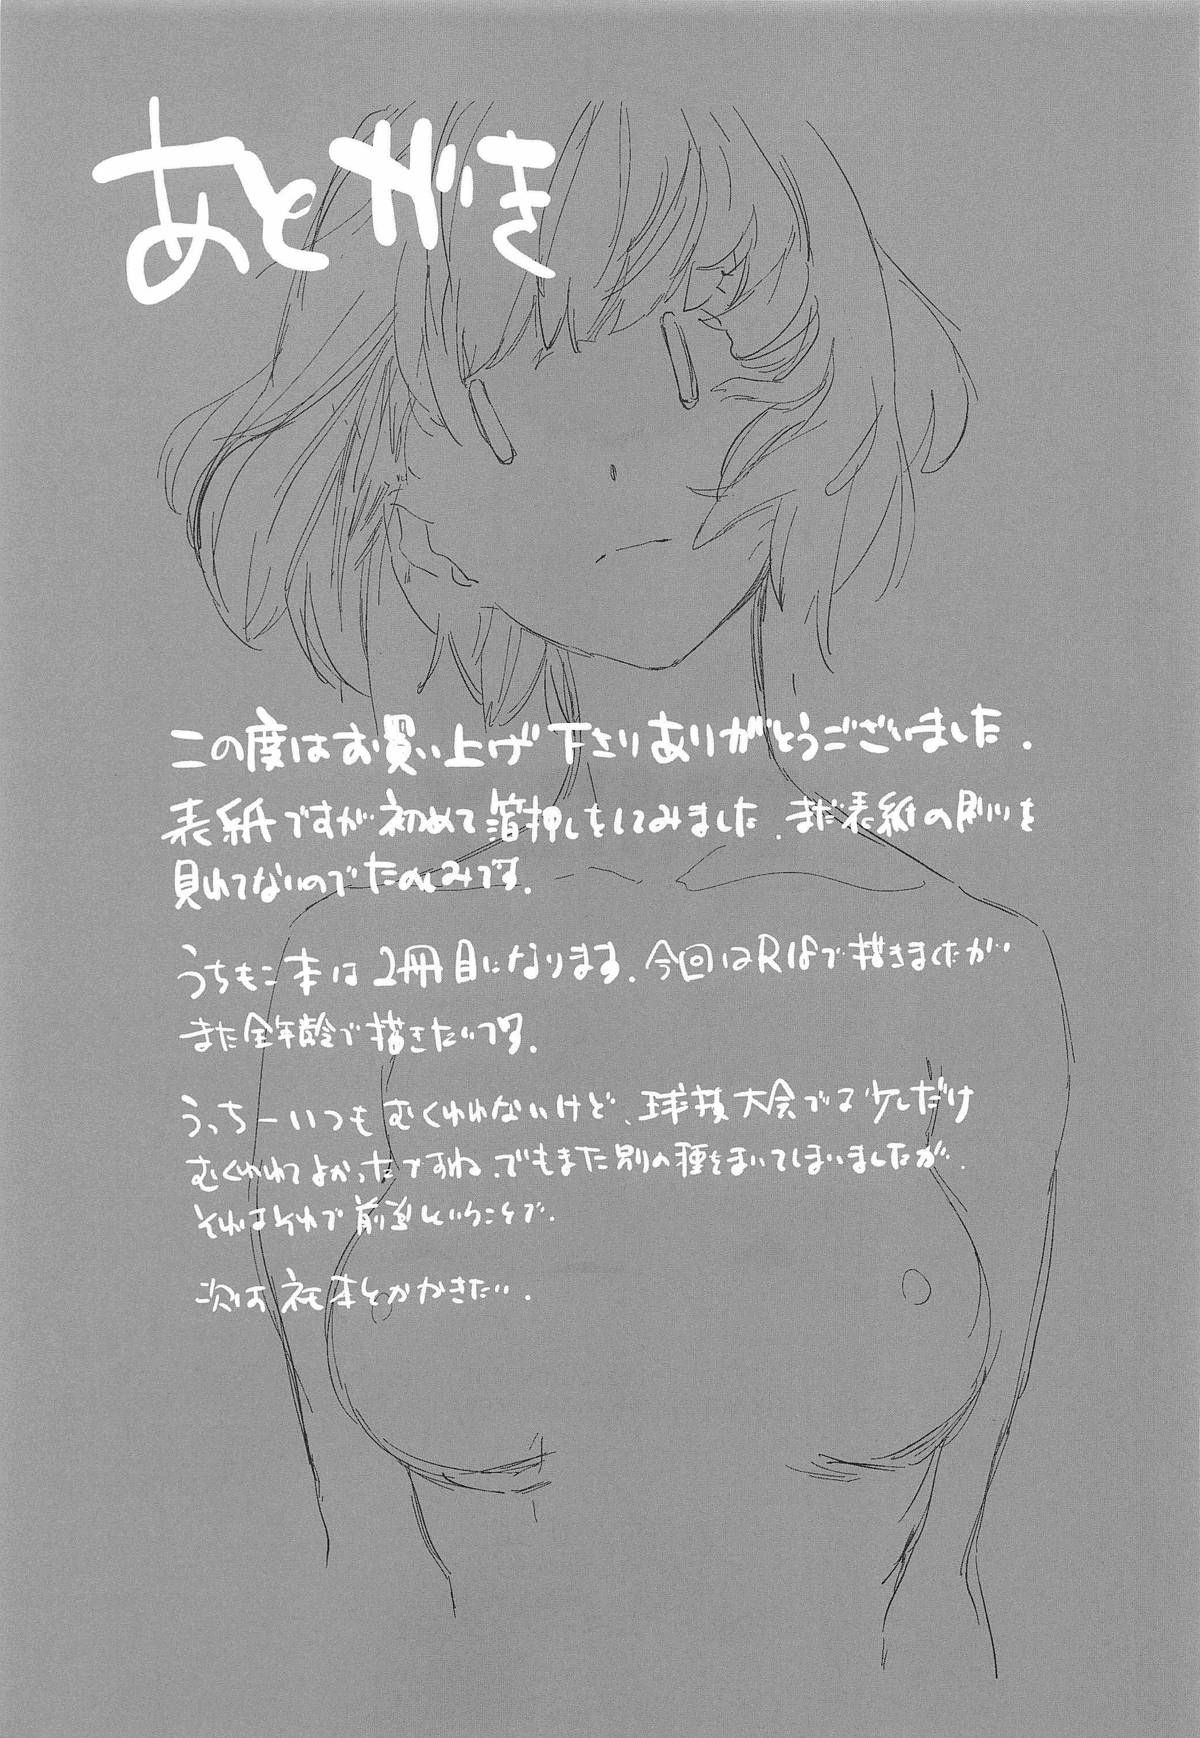 あとがき
この度はお買い上げ下さりありがとうございました.
表紙ですが初めて箔押しをしてみました. まだ表紙の刷りを
見れてないのでたのしみです.
うちもこ本は2冊目になります. 今回はR18で描きましたが
また全年齢で描きたいです.
うっちーいつもむくわれないけど、球技大会で少しだけ
むくわれてよかったですね. でもまた別の種をまいてしまいましたが.
それはそれで前進ということで.
次はネモ本とかかきたい.